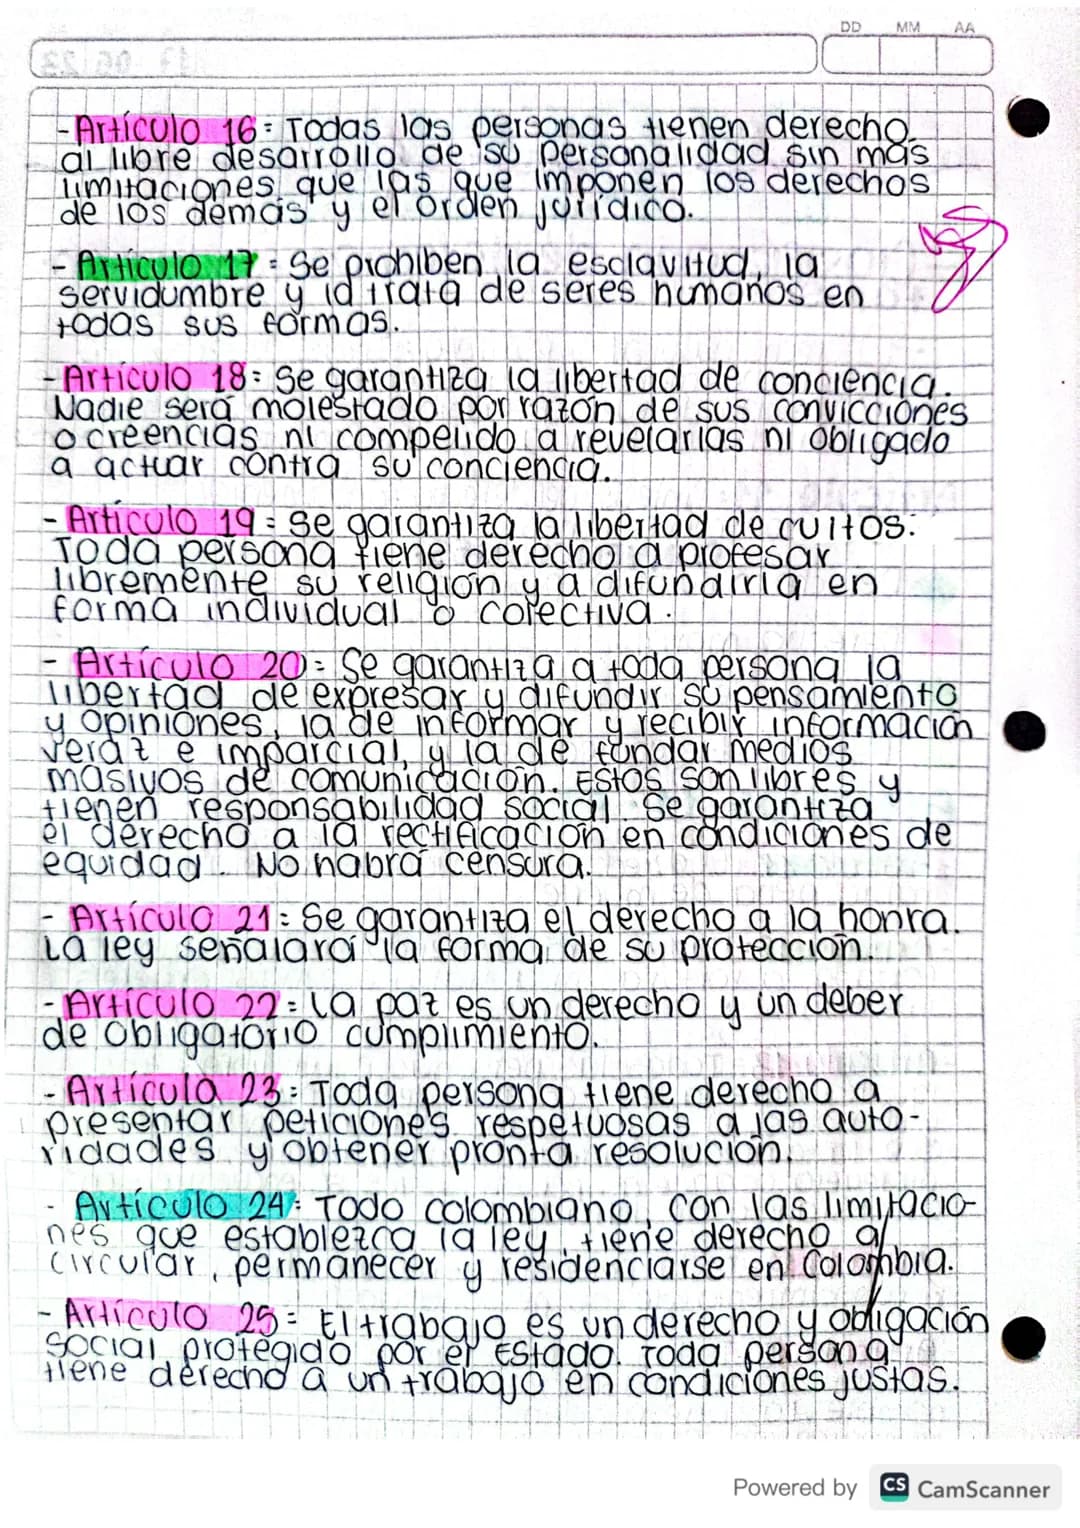 DD MM AA
- Artículo 16: Todas las personas tienen derecho
al libre desarrollo de su personalidad sin más
limitaciones que las que imponen los derechos
de los demás y el orden jurídico.
- Artículo 17: Se prohiben la esclavitud, la
servidumbre y la trata de seres humanos en
todas sus formas.
- Artículo 18: Se garantiza la libertad de conciencia.
Nadie será molestado por razón de sus convicciones
o creencias ni compelido a revelarlas ni obligado
a actuar contra su conciencia.
- Artículo 19: Se garantiza la libertad de cultos.
Toda persona tiene derecho a profesar
libremente su religión y a difundirla en
forma individual o colectiva.
- Artículo 20: Se garantiza a toda persona la
libertad de expresar y difundir su pensamiento
y opiniones, la de informar y recibir información
veraz e imparcial, y la de fundar medios
masivos de comunicación. Estos son libres y
tienen responsabilidad social. Se garantiza
el derecho a la rectificación en condiciones de
equidad. No habrá censura.
- Artículo 21: Se garantiza el derecho a la honra.
La ley señalará la forma de su protección.
- Artículo 22: La paz es un derecho y un deber
de obligatorio cumplimiento.
- Artículo 23: Toda persona tiene derecho a
presentar peticiones respetuosas a las auto-
ridades y obtener pronta resolución.
- Artículo 24: Todo colombiano, con las limitacio-
nes que establezca la ley, tiene derecho a
circular, permanecer y residenciarse en Colombia.
- Artículo 25: El trabajo es un derecho y obligación
social protegido por el Estado. Toda persona
tiene derecho a un trabajo en condiciones justas.
Powered by CS CamScanner